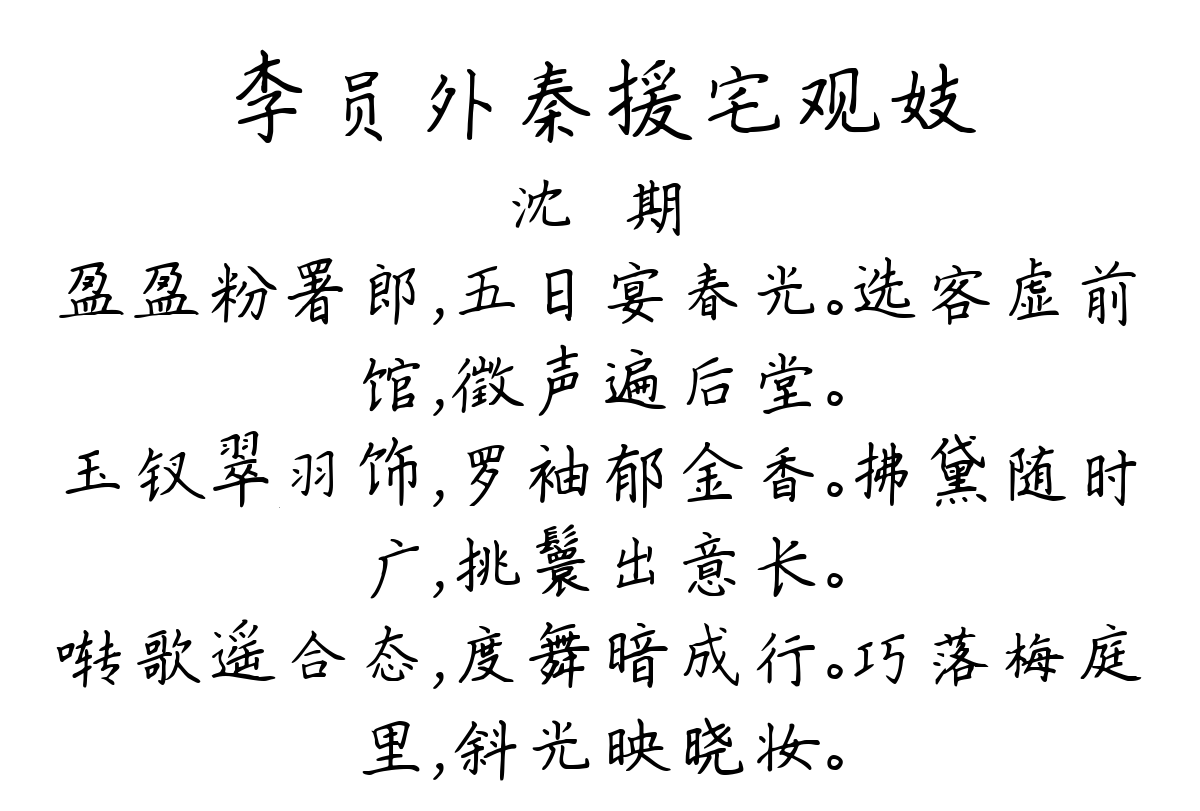 李员外秦援宅观妓
沈 期
盈盈粉署郎,五日宴春光。选客虚前
馆,徵声遍后堂。
玉钗翠羽饰,罗袖郁金香。拂黛随时
广,挑鬟出意长。
啭歌遥合态,度舞暗成行。巧落梅庭
里,斜光映晓妆。